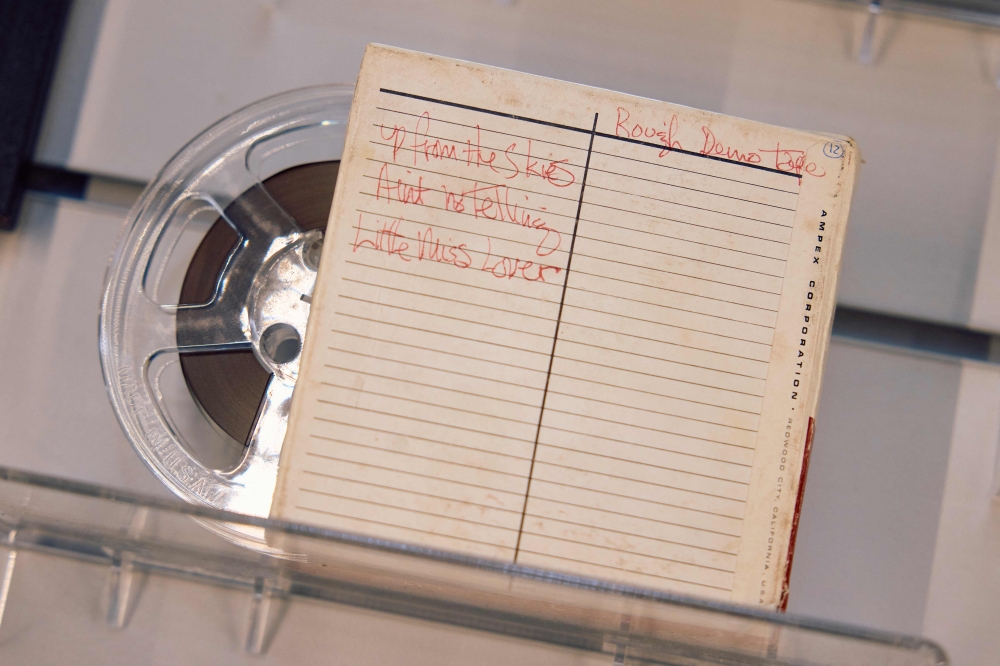 Rough Demo tape
12
up from the Skies
Aint no telling
Little Miss Lover
AMPEX CORPORATION · REDWOOD CITY, CALIFORNIA, USA